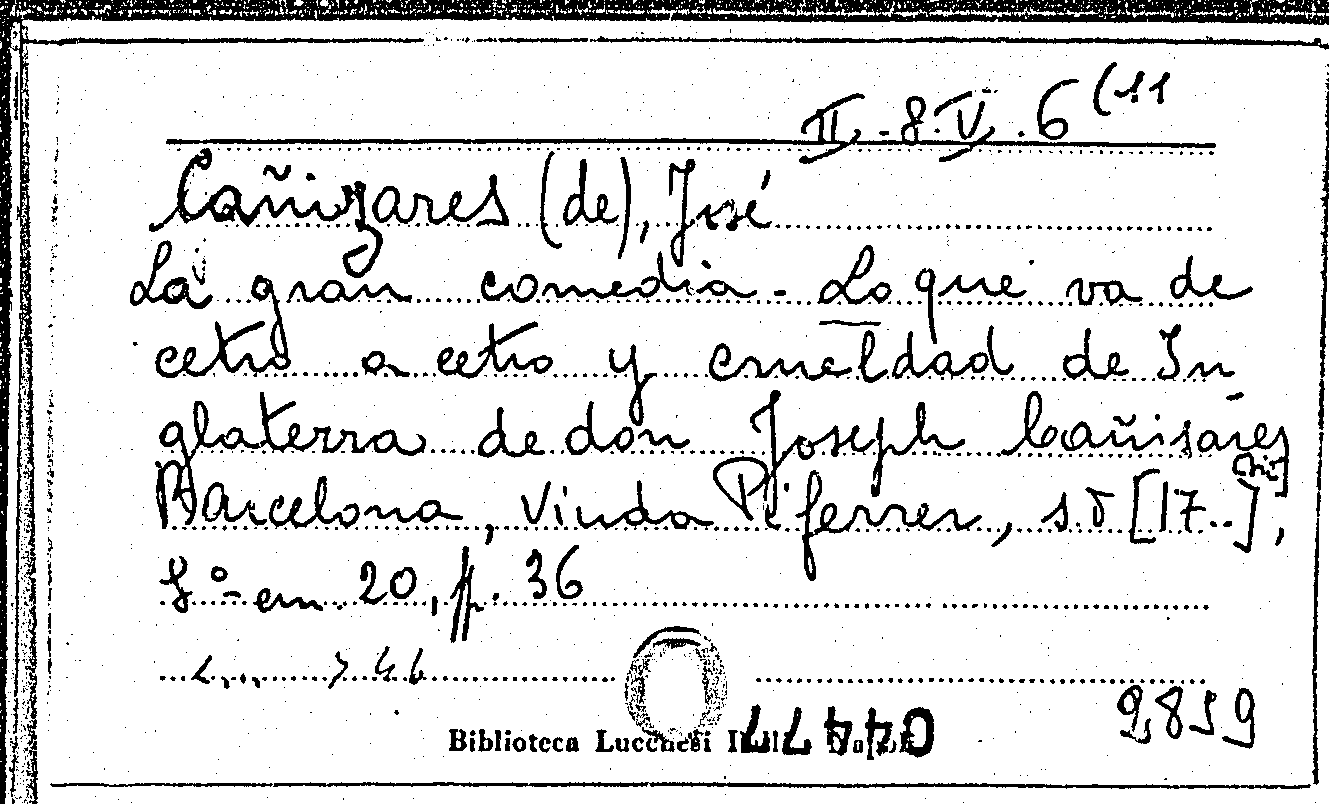 II.8.V.6(11
Cañizares (de), José
La gran comedia - Lo que va de
cetro a cetro y crueldad de In
glaterra de don Joseph Cañisares
[sic]
Barcelona, Viuda Piferrer, s.d [17..],
8º cm. 20, p. 36
Biblioteca Lucchesi
04477
2859